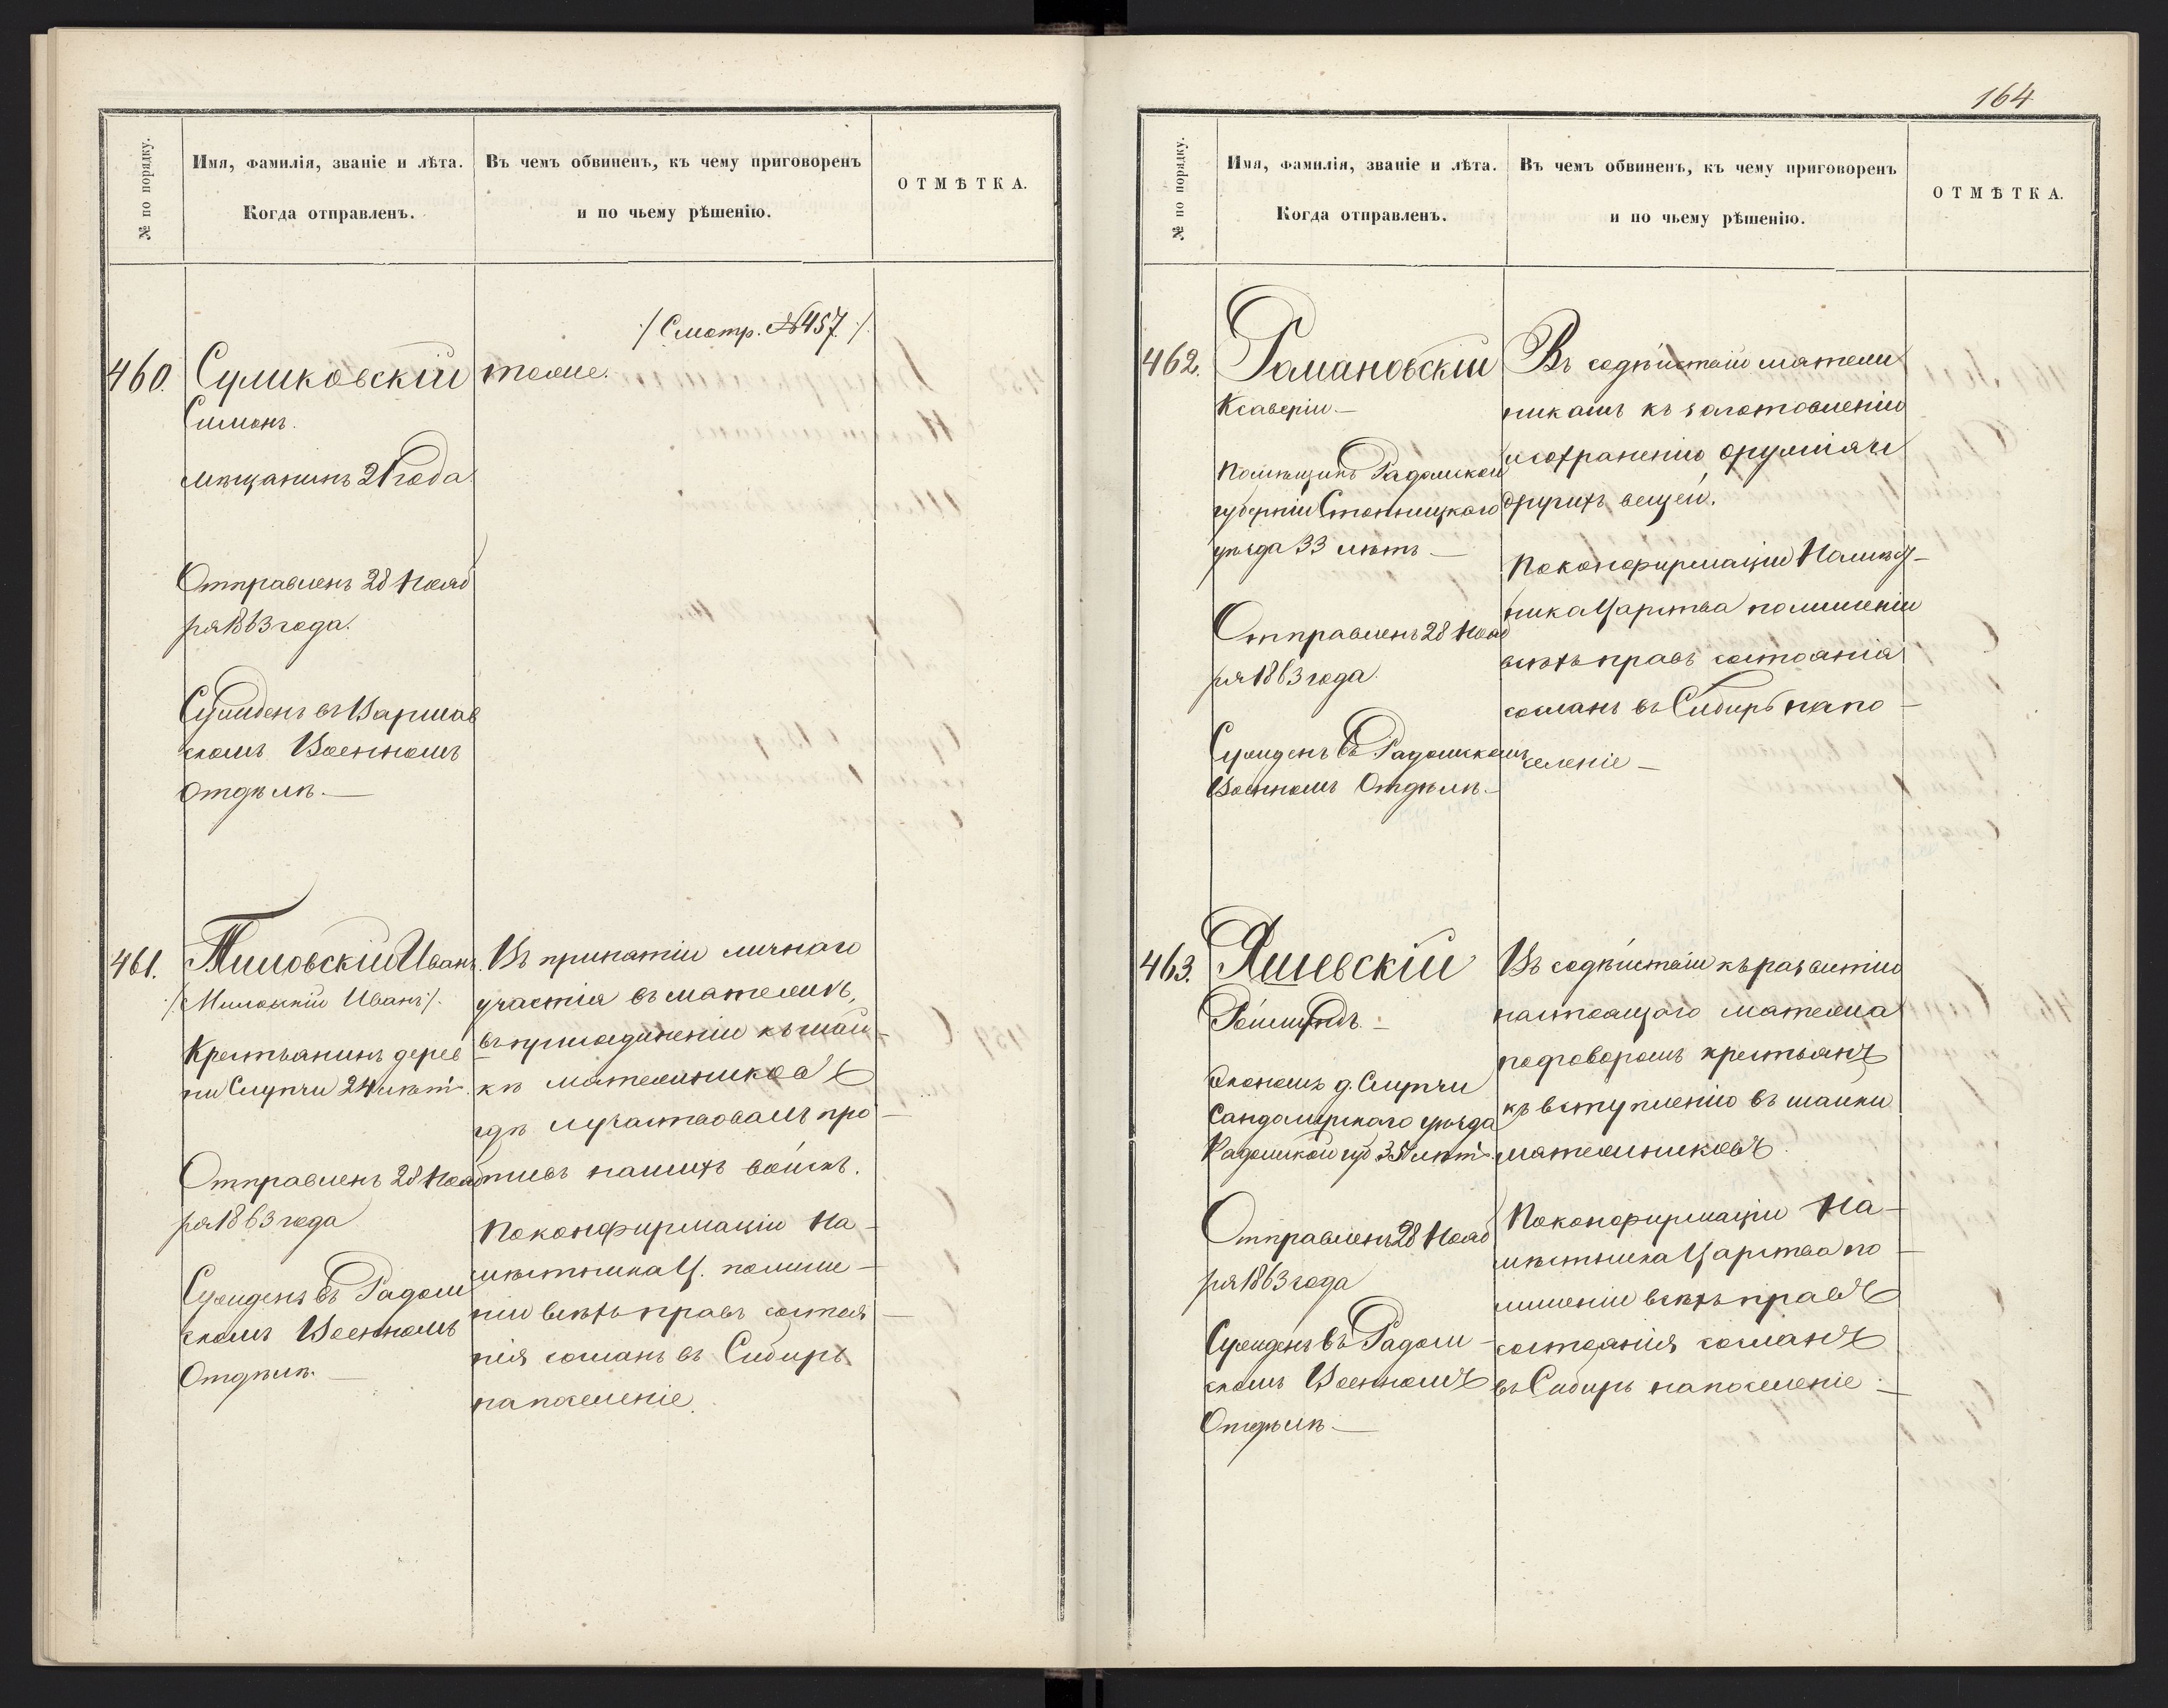 № по порядку.
Имя, фамилія, званіе и лѣта.
Когда отправленъ.
Въ чемъ обвиненъ, къ чему приговоренъ
и по чьему рѣшенію.
ОТМѢТКА.
/Смотр. №457./
460. Суликовскій тоже.
Симонъ.
Мѣщанинъ 21 года
Отправленъ 28 Нояб
ря 1863 года.
Сужденъ въ Варшав
скомъ Военномъ
Отдѣлѣ. —
461. Иванъ.
/Миловскій Иванъ/.
Крестьянинъ дерев
ни Слупчи 24 лѣтъ.
Отправленъ 28 Нояб
ря 1863 года
Сужденъ въ Радом
скомъ Военномъ
Отдѣлѣ. —
Въ принятіи личнаго
участія въ мятежѣ,
въ присоединеніи къ шай-
кѣ мятежниковъ
гдѣ и участвовалъ про-
тивъ нашихъ войскъ.
По конфирмаціи На-
мѣстника Ц. по лише-
ніи всѣхъ правъ состоя-
нія сосланъ въ Сибирь
на поселеніе.
164
№ по порядку.
Имя, фамилія, званіе и лѣта.
Когда отправленъ.
Въ чемъ обвиненъ, къ чему приговоренъ
и по чьему рѣшенію.
ОТМѢТКА.
462. Романовскій
Ксаверій —
Помѣщикъ Радомской
губерніи Стопницкаго
уѣзда 33 лѣтъ —
Отправленъ 28 Нояб
ря 1863 года.
Сужденъ въ Радомскомъ
Военномъ Отдѣлѣ. —
Въ содѣйствіи мятеж
никамъ къ заготовленію
и сохраненію оружія и
другихъ вещей.
По конфирмаціи Намѣст-
ника Царства по лишеніи
всѣхъ правъ состоянія
сосланъ въ Сибирь на по-
селеніе —
463. Яшевскій
—
Экономъ д. Слупчи
Сандомирскаго уѣзда
Радомской губ 35 лѣтъ.
Отправленъ 28 Нояб
ря 1863 года
Сужденъ въ Радом-
скомъ Военномъ
Отдѣлѣ. —
Въ содѣйствіи къ развитію
настоящаго мятежа
подговоромъ крестьянъ
къ вступленію въ шайки
мятежниковъ.
По конфирмаціи На-
мѣстника Царства по-
лишеніи всѣхъ правъ
состоянія сосланъ
въ Сибирь на поселеніе. —